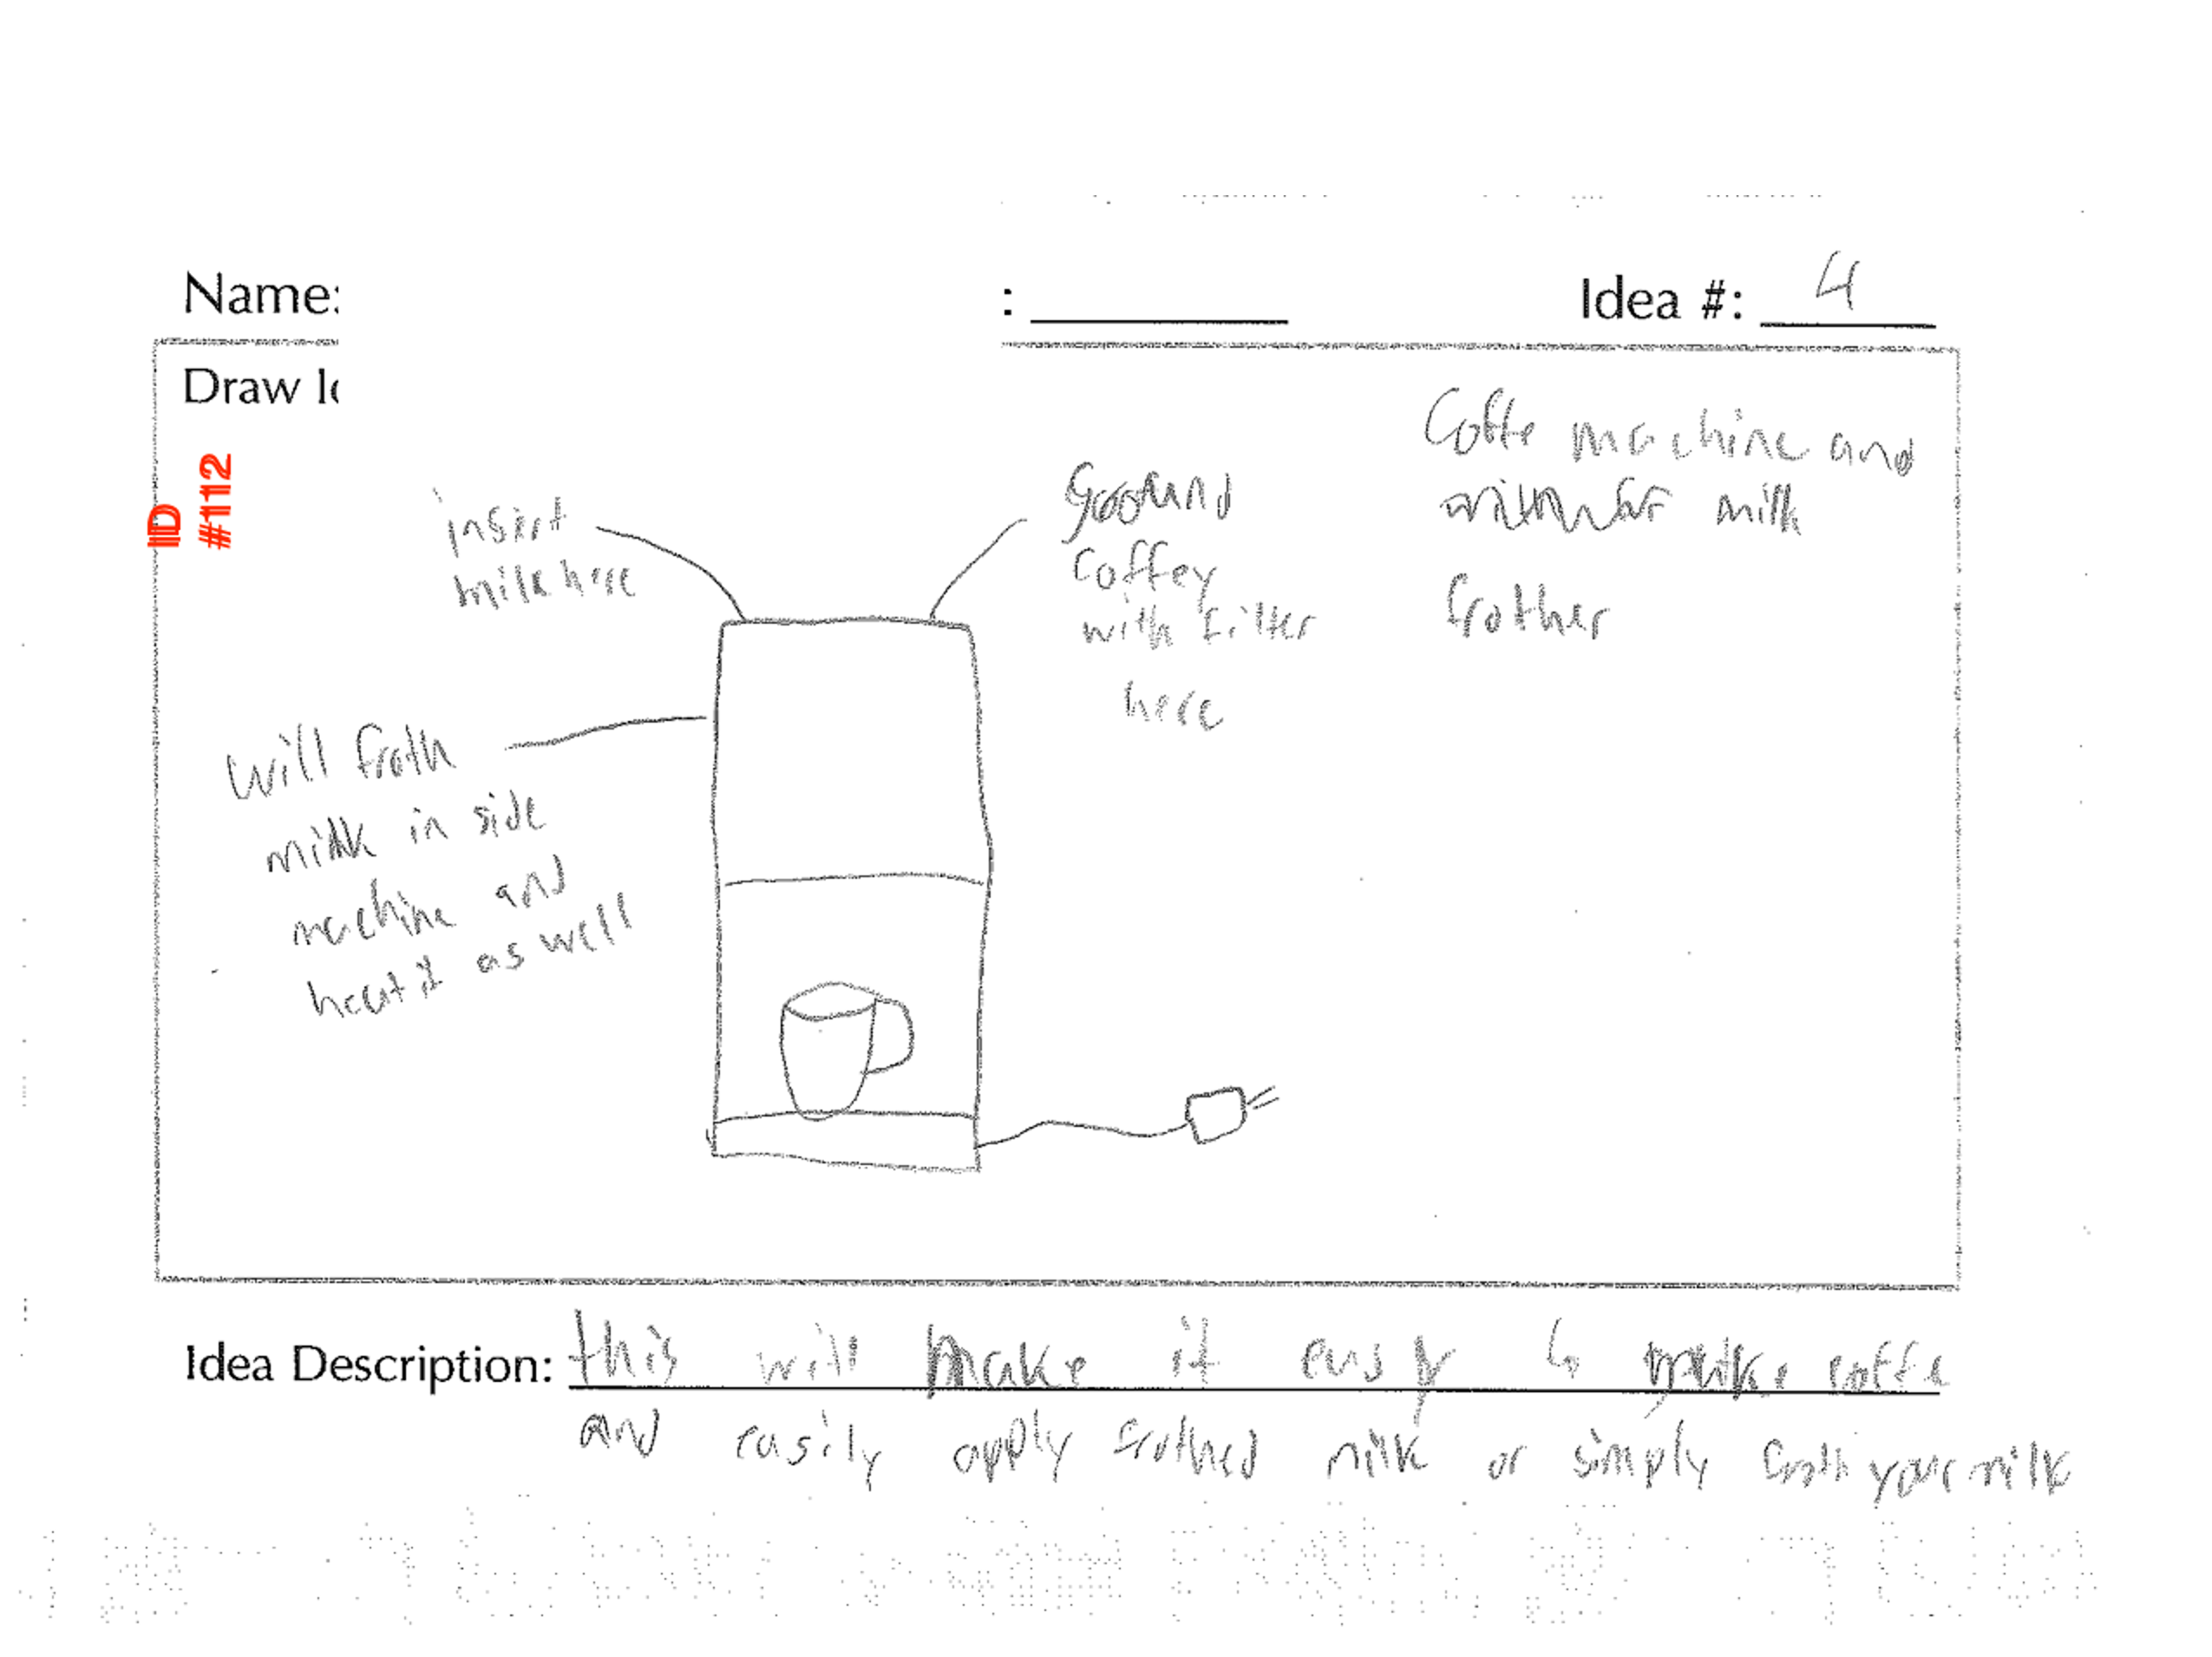 Name:
: Idea #: 4
Draw Id
ID
#112
insert
milk here
Ground
coffey
with filter
here
Coffe machine and
milk
frother
will froth
milk in side
machine and
heat it as well
Idea Description: this will make it easy to make coffe
and easily apply frothed milk or simply froth your milk